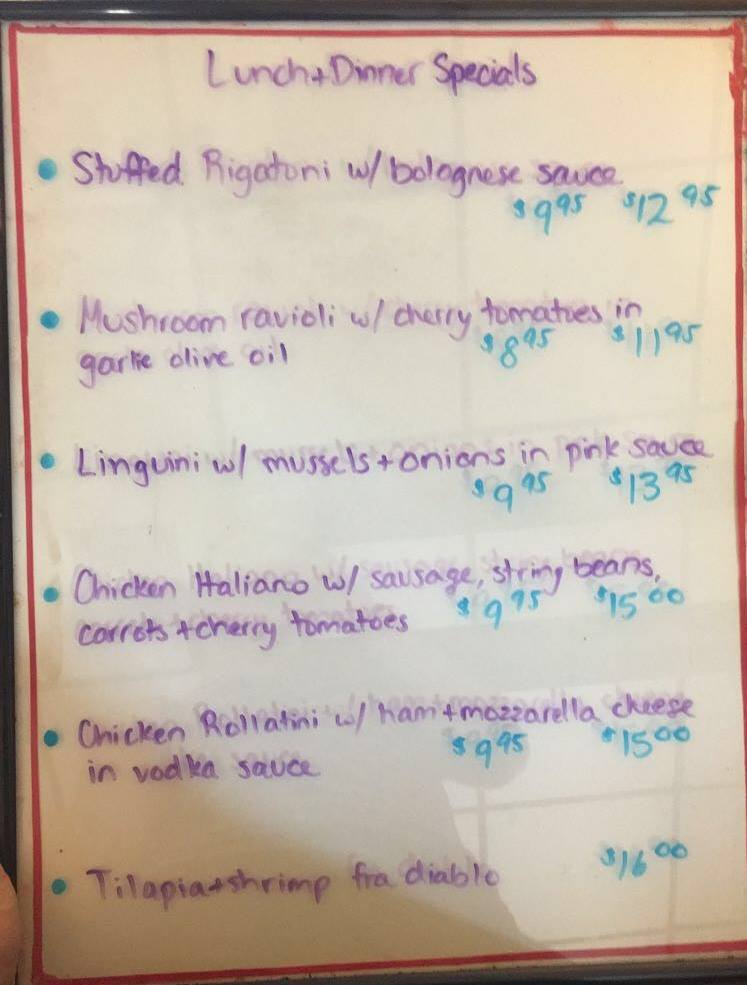 Lunch + Dinner Specials
• Stuffed Rigatoni w/ bolognese sauce
$9.95 $12.95
• Mushroom ravioli w/ cherry tomatoes in
garlic olive oil $8.95 $11.95
• Linguini w/ mussels + onions in pink sauce
$9.95 $13.95
• Chicken Italiano w/ sausage, string beans,
carrots + cherry tomatoes $9.95 $15.00
• Chicken Rollatini w/ ham + mozzarella cheese
in vodka sauce $9.95 $15.00
• Tilapia + shrimp fra diablo $16.00